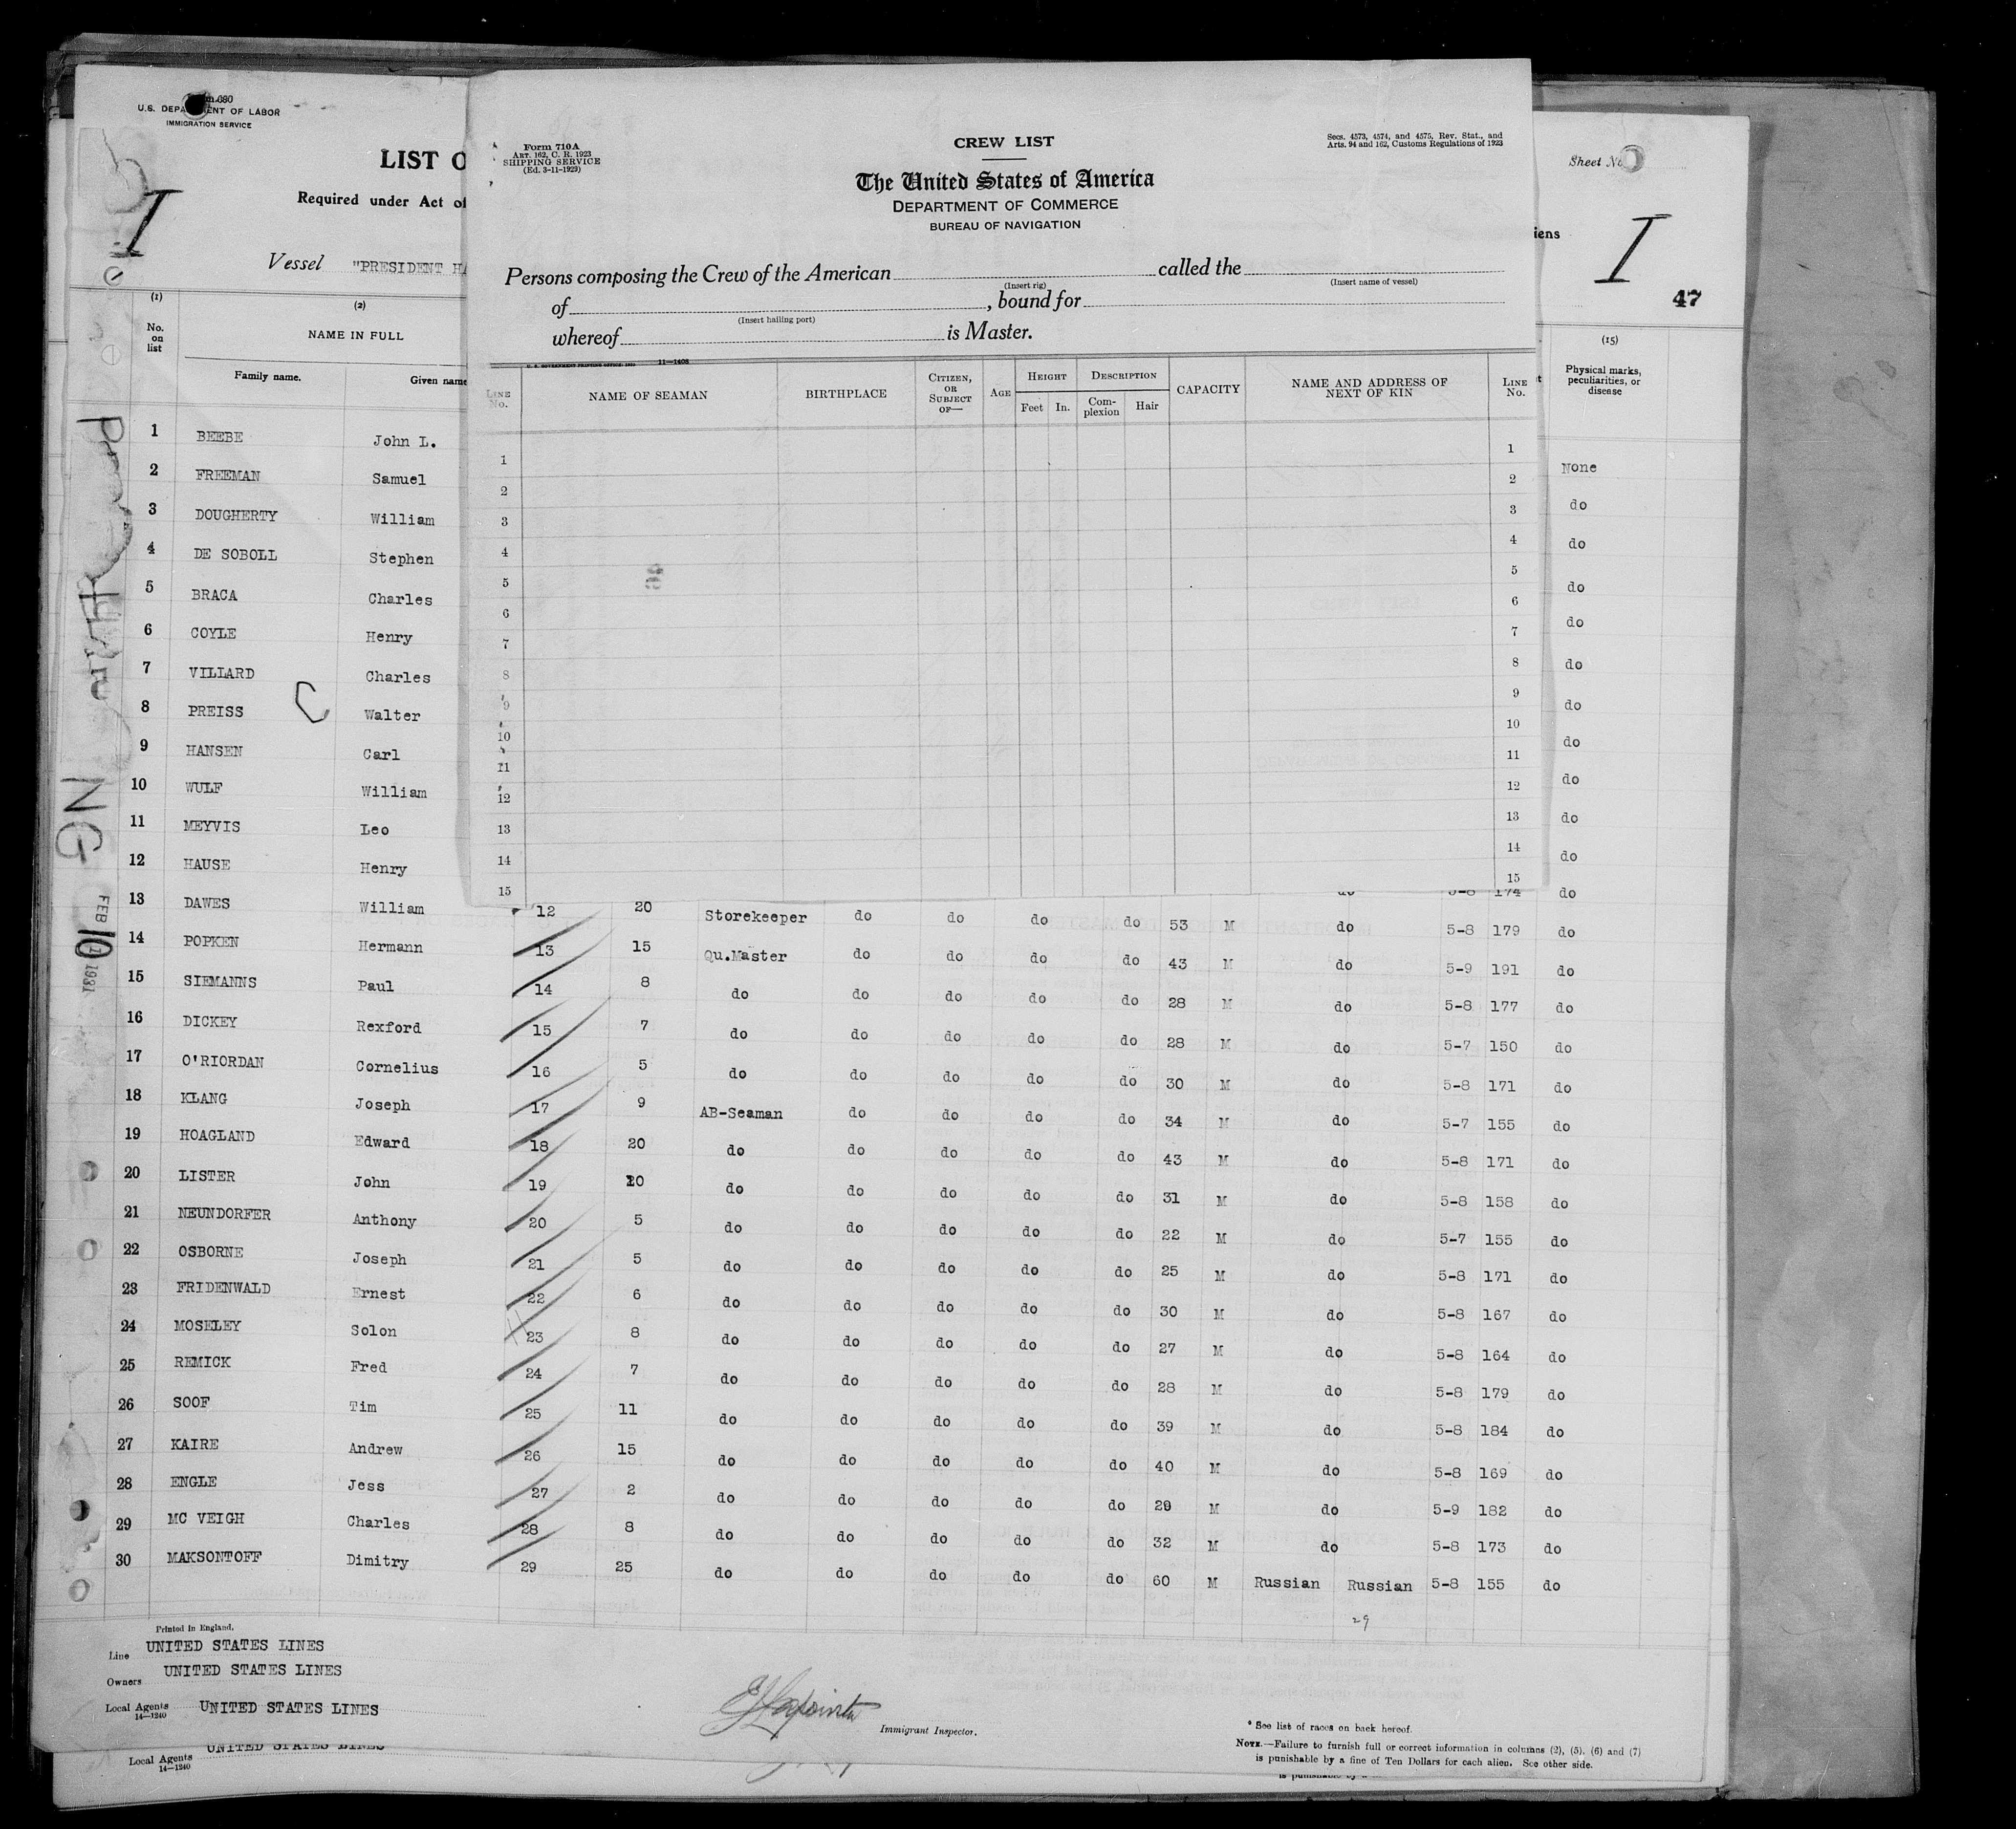 Form 680
U.S. DEPARTMENT OF LABOR
IMMIGRATION SERVICE
LIST O
Required under Act of
Vessel "PRESIDENT HA
Form 710A
ART. 162, C. R. 1923
SHIPPING SERVICE
(Ed. 3-11-1929)
CREW LIST
Secs. 4573, 4574, and 4575, Rev. Stat., and
Arts. 94 and 162, Customs Regulations of 1923
The United States of America
DEPARTMENT OF COMMERCE
BUREAU OF NAVIGATION
Persons composing the Crew of the American called the
(Insert rig) (Insert name of vessel)
of , bound for
(Insert hailing port)
whereof is Master.
U. S. GOVERNMENT PRINTING OFFICE 11—1408
LINE No. NAME OF SEAMAN BIRTHPLACE CITIZEN, OR SUBJECT OF— AGE HEIGHT Feet In. DESCRIPTION Complexion Hair CAPACITY NAME AND ADDRESS OF NEXT OF KIN LINE No.
1 1
2 2
3 3
4 4
5 5
6 6
7 7
8 8
9 9
10 10
11 11
12 12
13 13
14 14
15 15
Sheet No.
iens
I
I
47
(1) (2) (15)
No. on list NAME IN FULL Physical marks, peculiarities, or disease
Family name. Given name
1 BEEBE John L. None
2 FREEMAN Samuel do
3 DOUGHERTY William do
4 DE SOBOLL Stephen do
5 BRACA Charles do
6 COYLE Henry do
7 VILLARD Charles do
8 PREISS C Walter do
9 HANSEN Carl do
10 WULF William do
11 MEYVIS Leo do
12 HAUSE Henry do
do 5-8 174 do
13 DAWES William 12 20 Storekeeper do do do do 53 M do 5-8 179 do
14 POPKEN Hermann 13 15 Qu.Master do do do do 43 M do 5-9 191 do
15 SIEMANNS Paul 14 8 do do do do do 28 M do 5-8 177 do
16 DICKEY Rexford 15 7 do do do do do 28 M do 5-7 150 do
17 O'RIORDAN Cornelius 16 5 do do do do do 30 M do 5-8 171 do
18 KLANG Joseph 17 9 AB-Seaman do do do do 34 M do 5-7 155 do
19 HOAGLAND Edward 18 20 do do do do do 43 M do 5-8 171 do
20 LISTER John 19 10 do do do do do 31 M do 5-8 158 do
21 NEUNDORFER Anthony 20 5 do do do do do 22 M do 5-7 155 do
22 OSBORNE Joseph 21 5 do do do do do 25 M do 5-8 171 do
23 FRIDENWALD Ernest 22 6 do do do do do 30 M do 5-8 167 do
24 MOSELEY Solon 23 8 do do do do do 27 M do 5-8 164 do
25 REMICK Fred 24 7 do do do do do 28 M do 5-8 179 do
26 SOOF Tim 25 11 do do do do do 39 M do 5-8 184 do
27 KAIRE Andrew 26 15 do do do do do 40 M do 5-8 169 do
28 ENGLE Jess 27 2 do do do do do 29 M do 5-9 182 do
29 MC VEIGH Charles 28 8 do do do do do 32 M do 5-8 173 do
30 MAKSONTOFF Dimitry 29 25 do do do do do 60 M Russian Russian 5-8 155 do
29
NG
FEB 10 1931
Printed in England.
Line UNITED STATES LINES
Owners UNITED STATES LINES
Local Agents UNITED STATES LINES
14—1240
Immigrant Inspector.
* See list of races on back hereof.
NOTE.—Failure to furnish full or correct information in columns (2), (5), (6) and (7)
is punishable by a fine of Ten Dollars for each alien. See other side.
Local Agents UNITED STATES LINES
14—1240
is punishable by a